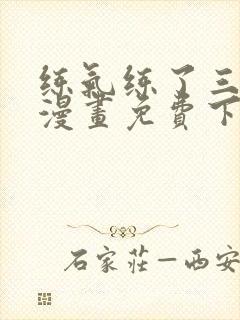 练氣练了三
漫畫免費下
石家莊—西安